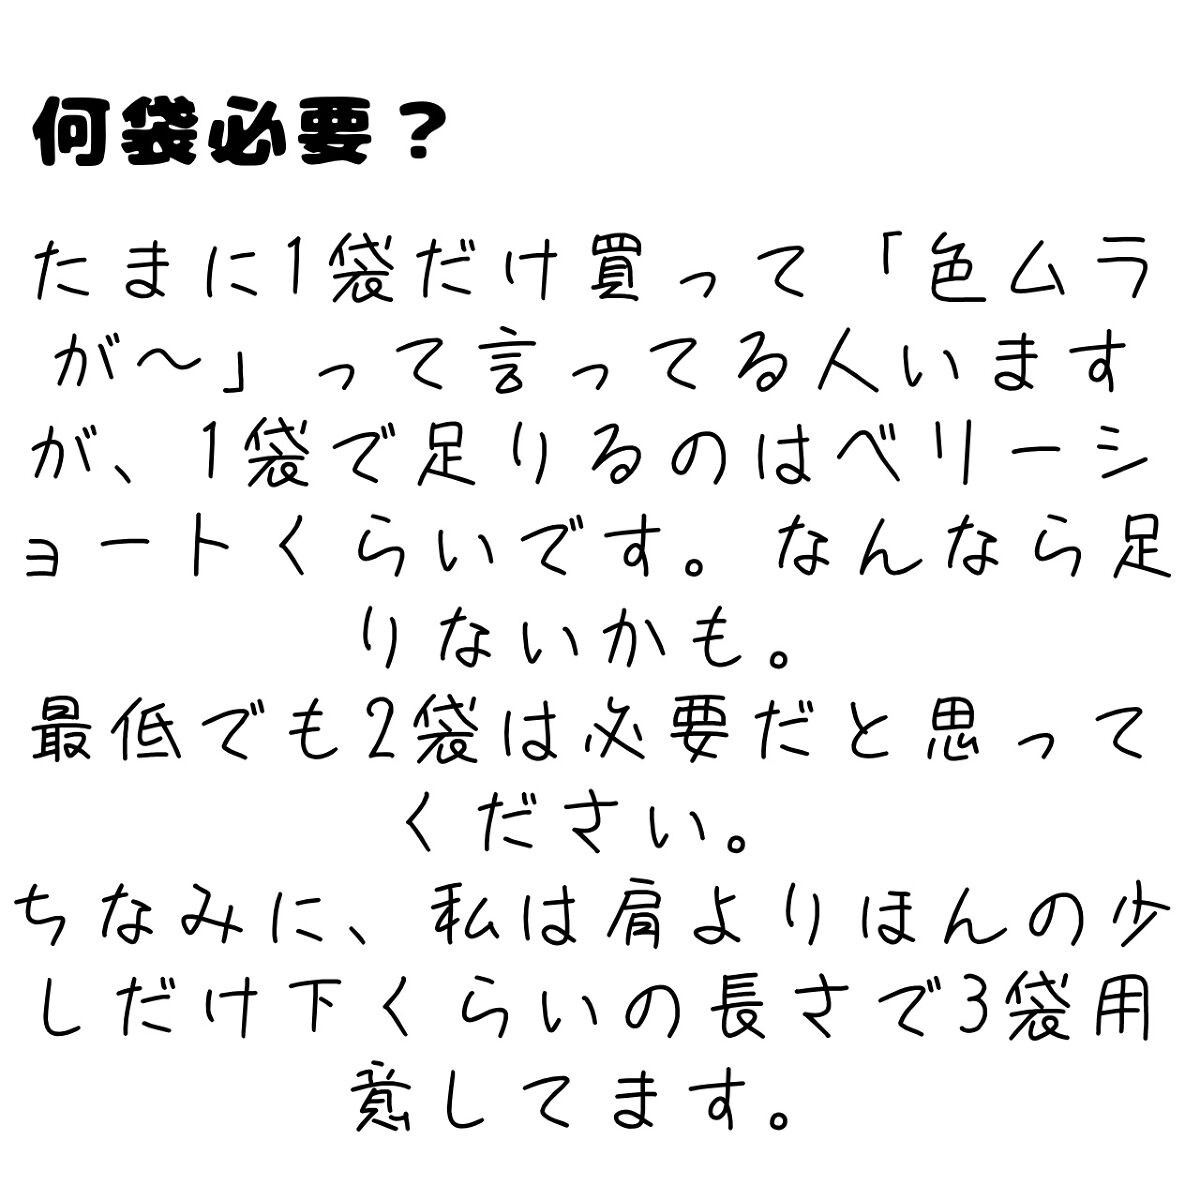 何袋必要？
たまに1袋だけ買って「色ムラ
が〜」って言ってる人います
が、1袋で足りるのはベリーシ
ョートくらいです。なんなら足
りないかも。
最低でも2袋は必要だと思って
ください。
ちなみに、私は肩よりほんの少
しだけ下くらいの長さで3袋用
意してます。